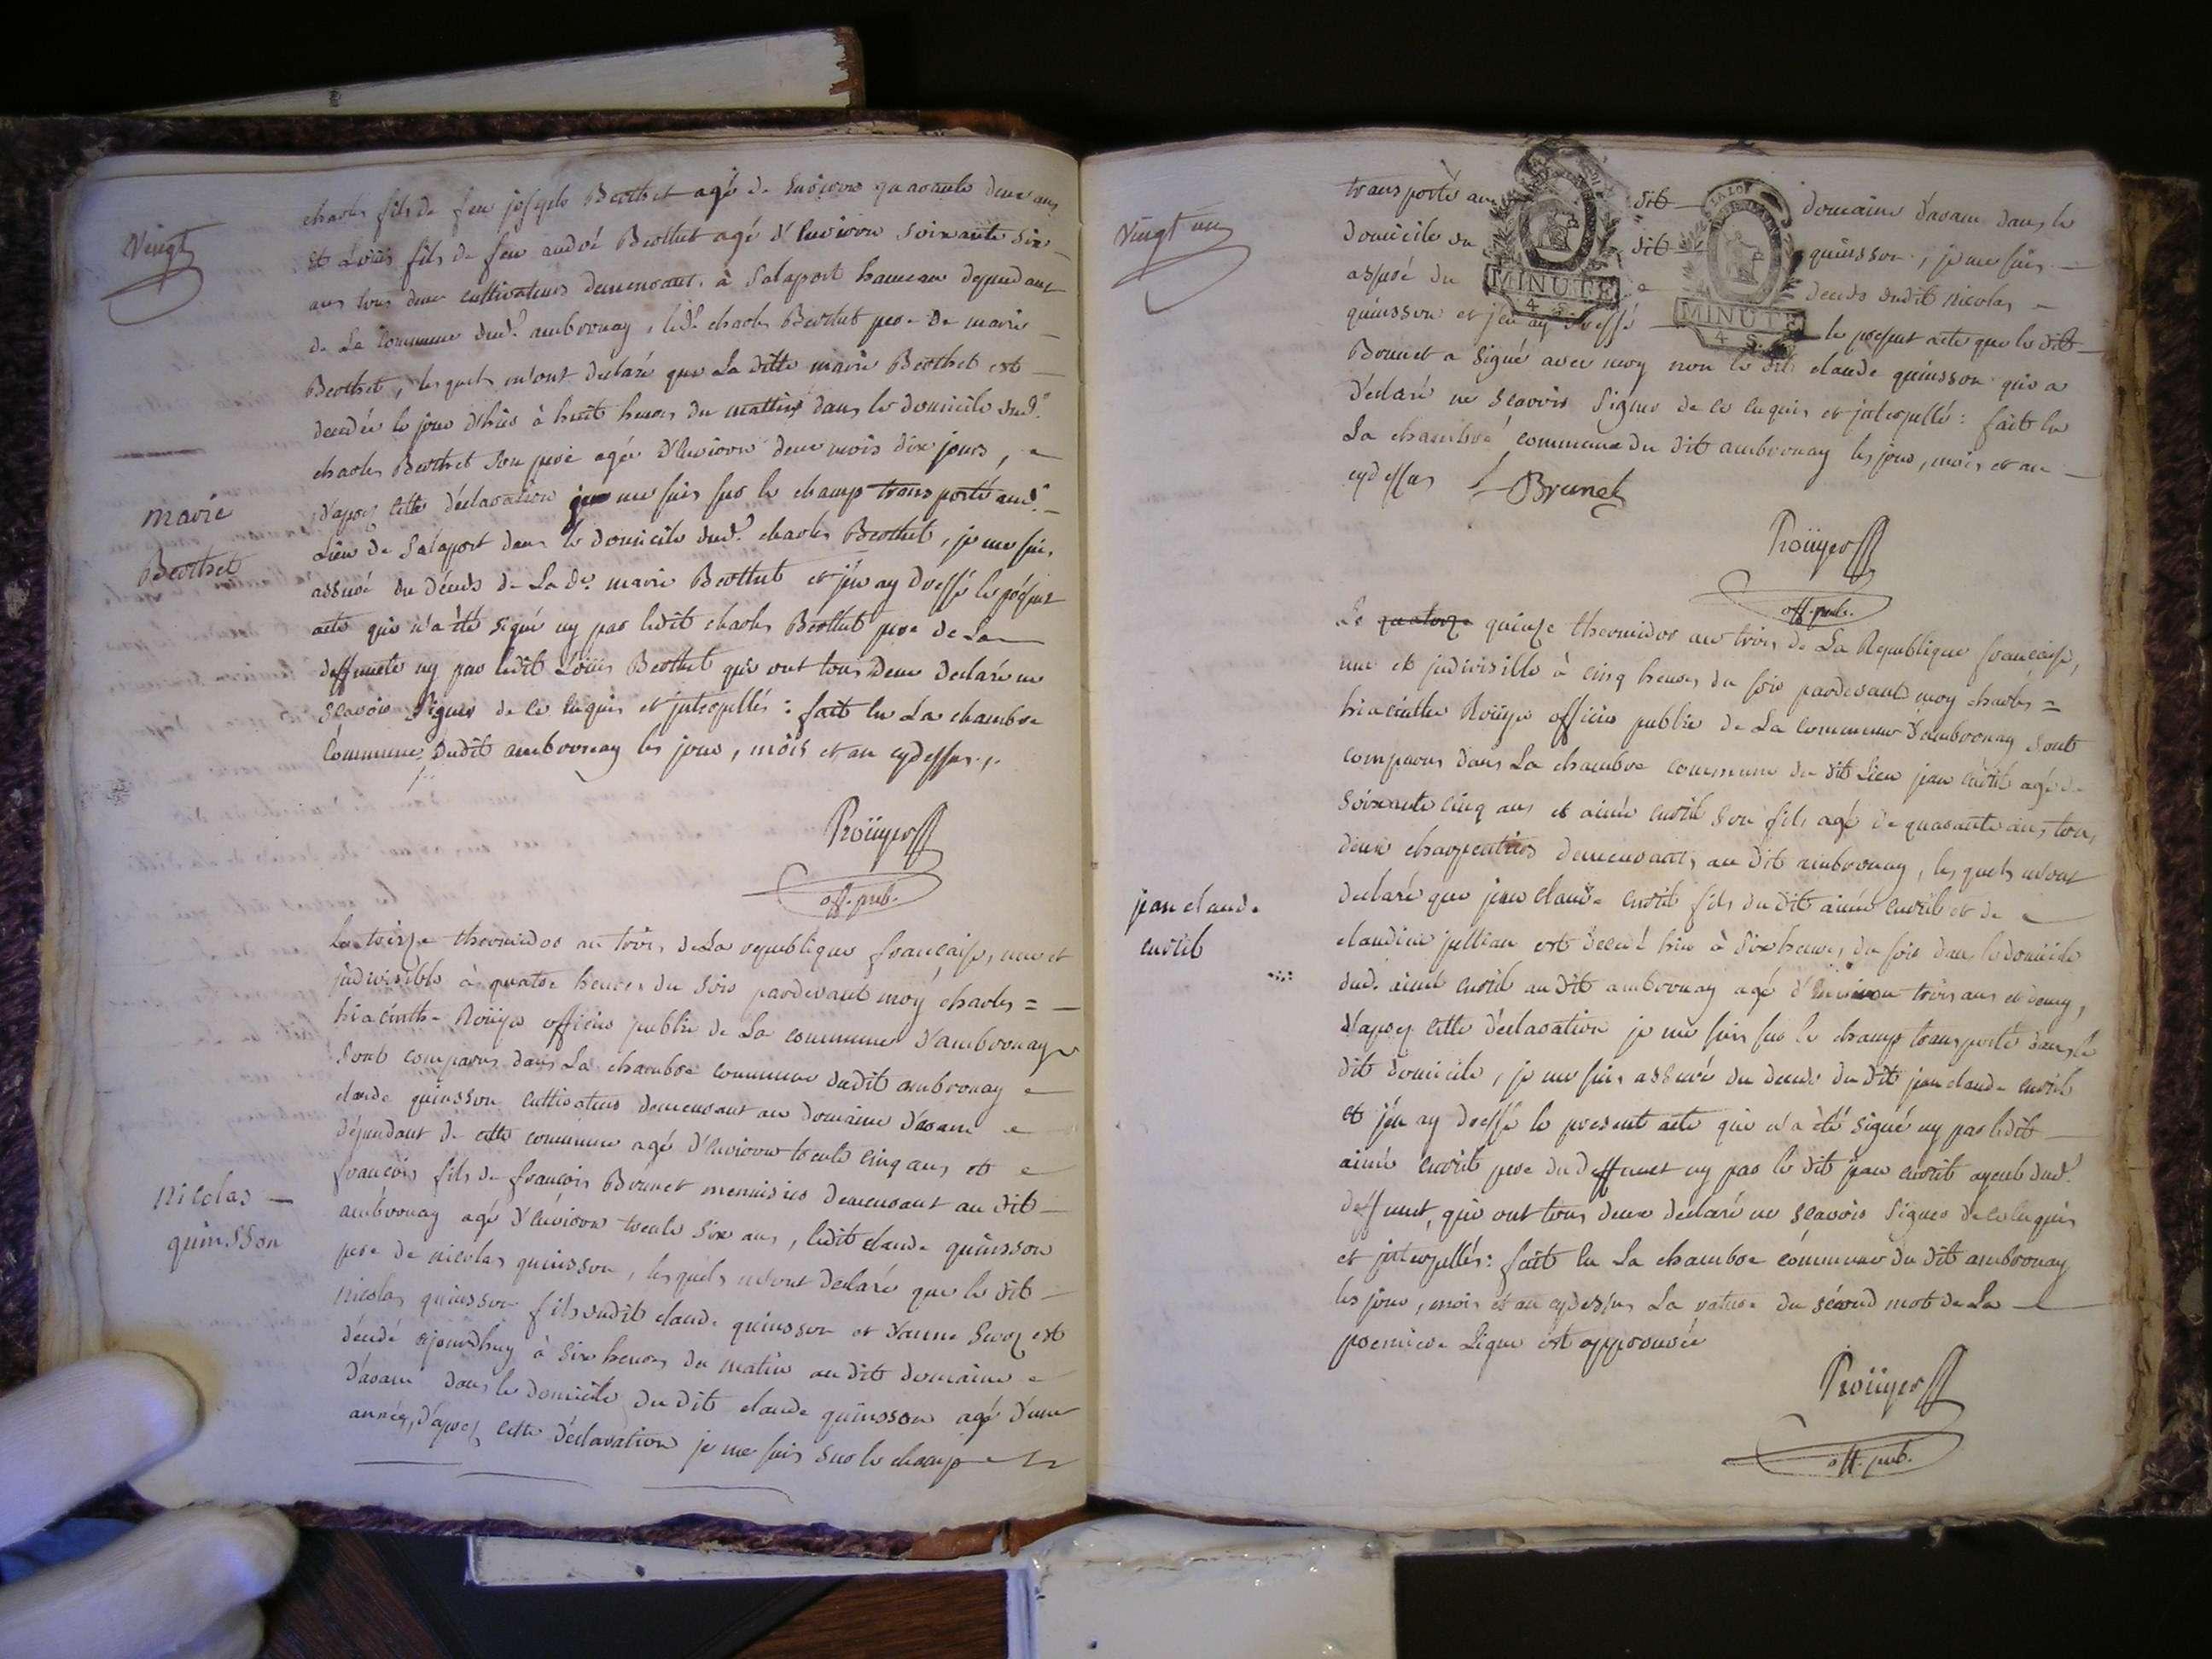 Vingt
charles fils de feu joseph Berthet agé de Environ quarante deux ans
et Loüis fils de feu andré Berthet agé d'Environ soixante six
ans tous deux cultivateurs demeurant à Salaport hameau dependant
de La Commune dud.t ambronay, led.t charles Berthet pere de marie
Berthet, lesquels m'ont declaré que La ditte marie Berthet est
decedée le jour d'hier à huit heures du mattin dans le domicile dud.t
charles Berthet son pere agée d'Environ deux mois dix jours,
d'aprez cette déclaration je me suis sur le champ transporté aud.t
Lieu de Salaport dans le domicile dud.t charles Berthet, je me suis
assuré du décès de La d.e marie Berthet et j'en ay dressé le présent
acte qui n'a été signé ny par ledit charles Berthet pere de La
deffunte ny par ledit Loüis Berthet qui ont tous Deux declaré ne
sçavoir signer de ce Enquis et jnterpellés : fait En La chambre
Commune dudit ambronay les jour, mois et an cydessus.
marie
Berthet
Roüyer
off. pub.
Le treize thermidor an trois de La republique francaise, une et
jndivisible à quatre heures du soir pardevant moy charles =
hiacinthe Roüyer officier public de La commune d'ambronay
Sont comparus dans La chambre commune dudit ambronay
claude quinsson cultivateur demeurant au domaine d'avare
dépendant de cette commune agé d'Environ trente cinq ans et
françois fils de françois Brunet menuisier demeurant au dit
ambronay agé d'Environ trente six ans, ledit claude quinsson
pere de nicolas quinsson, lesquels m'ont declaré que le dit
nicolas quinsson fils dudit claude quinsson et d'anne est
décédé ajourdhuy à six heures du matin au dit domaine
d'avare dans le domicile du dit claude quinsson agé d'une
année, d'aprez cette déclaration je me suis sur le champ
nicolas
quinsson
Vingt un
transporté au dit domaine d'avare dans le
domicile du dit quinsson, je me suis
assuré du deceds dudit nicolas
quinsson et j'en ay dressé le present acte que le dit
Brunet a signé avec moy non le dit claude quinsson qui a
déclaré ne sçavoir signer de ce Enquis et jnterpellé : fait En
La chambre commune du dit ambronay les jour, mois et an
cydessus Brunet
MINUTE
4 S
MINUTE
4 S
Roüyer
off. pub.
Le quatorze quinze thermidor an trois de La Republique francaise,
une et jndivisible à cinq heures du soir pardevant moy charles =
hiacinthe Roüyer officier public de La commune d'ambronay Sont
comparus dans La chambre commune du dit Lieu jean agé de
soixante cinq ans et aimé son fils agé de quarante ans, tous
deux charpentiers demeurants au dit ambronay, lesquels m'ont
declaré que jean claude fils du dit aimé et de
claudine est decedé hier à six heures du soir dans le domicile
dud. aimé au dit ambronay agé d'Environ trois ans et demy,
d'aprez cette déclaration je me suis sur le champ transporté dans le
dit domicile, je me suis assuré du deceds du dit jean claude
et j'en ay dressé le present acte qui n'a été signé ny par ledit
aimé pere du deffunt ny par le dit jean ayeul dud.t
deffunt, qui ont tous deux declaré ne sçavoir signer de ce Enquis
et jnterpellés : fait En La chambre commune du dit ambronay
les jour, mois et an cydessus La rature du second mot de La
premiere Ligne est approuvée
jean claude
Roüyer
off. pub.